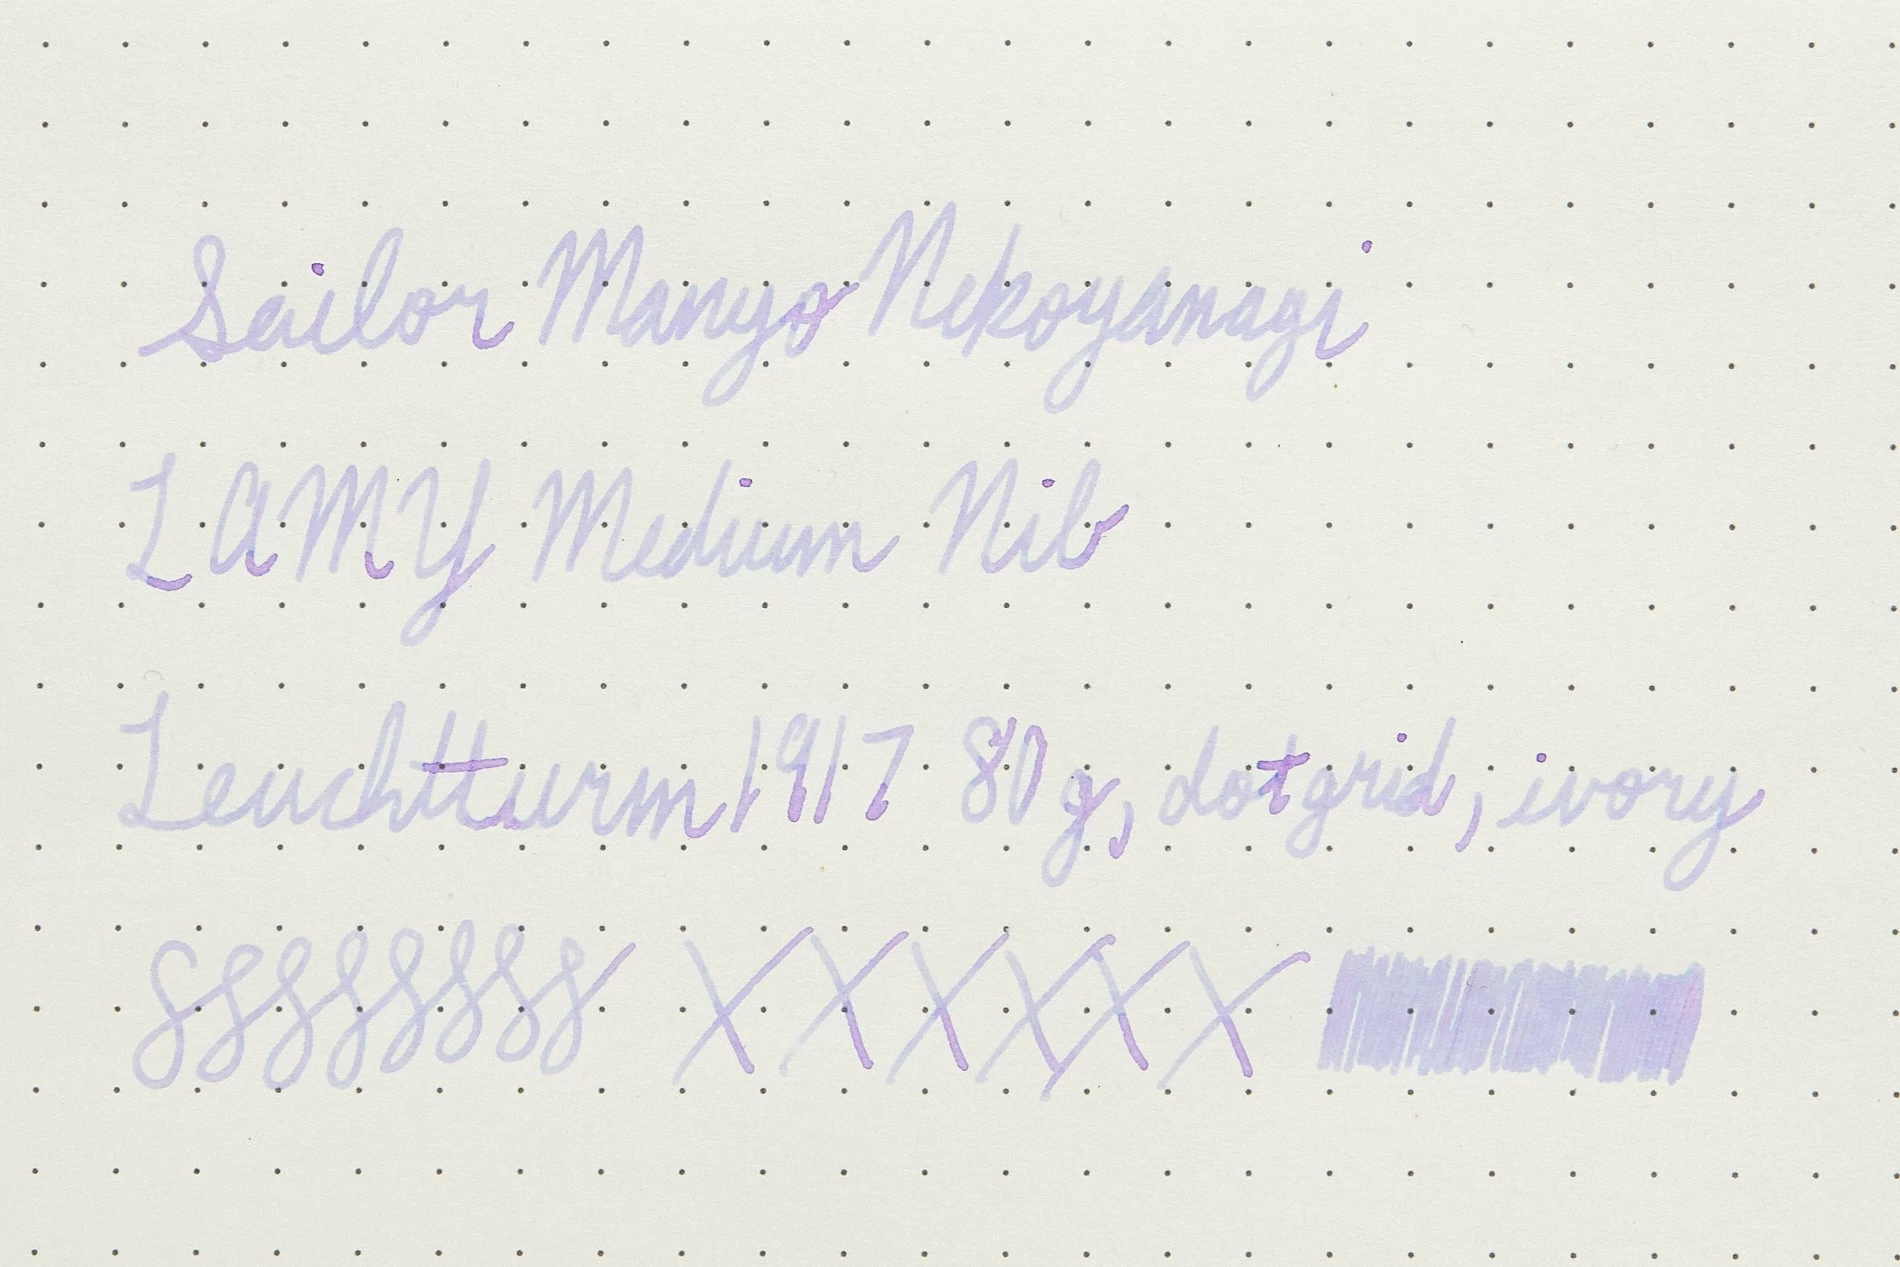 Sailor Manyo Nekoyanagi
LAMY Medium Nib
Leuchtturm1917 80g, dot grid, ivory
XXXXXX